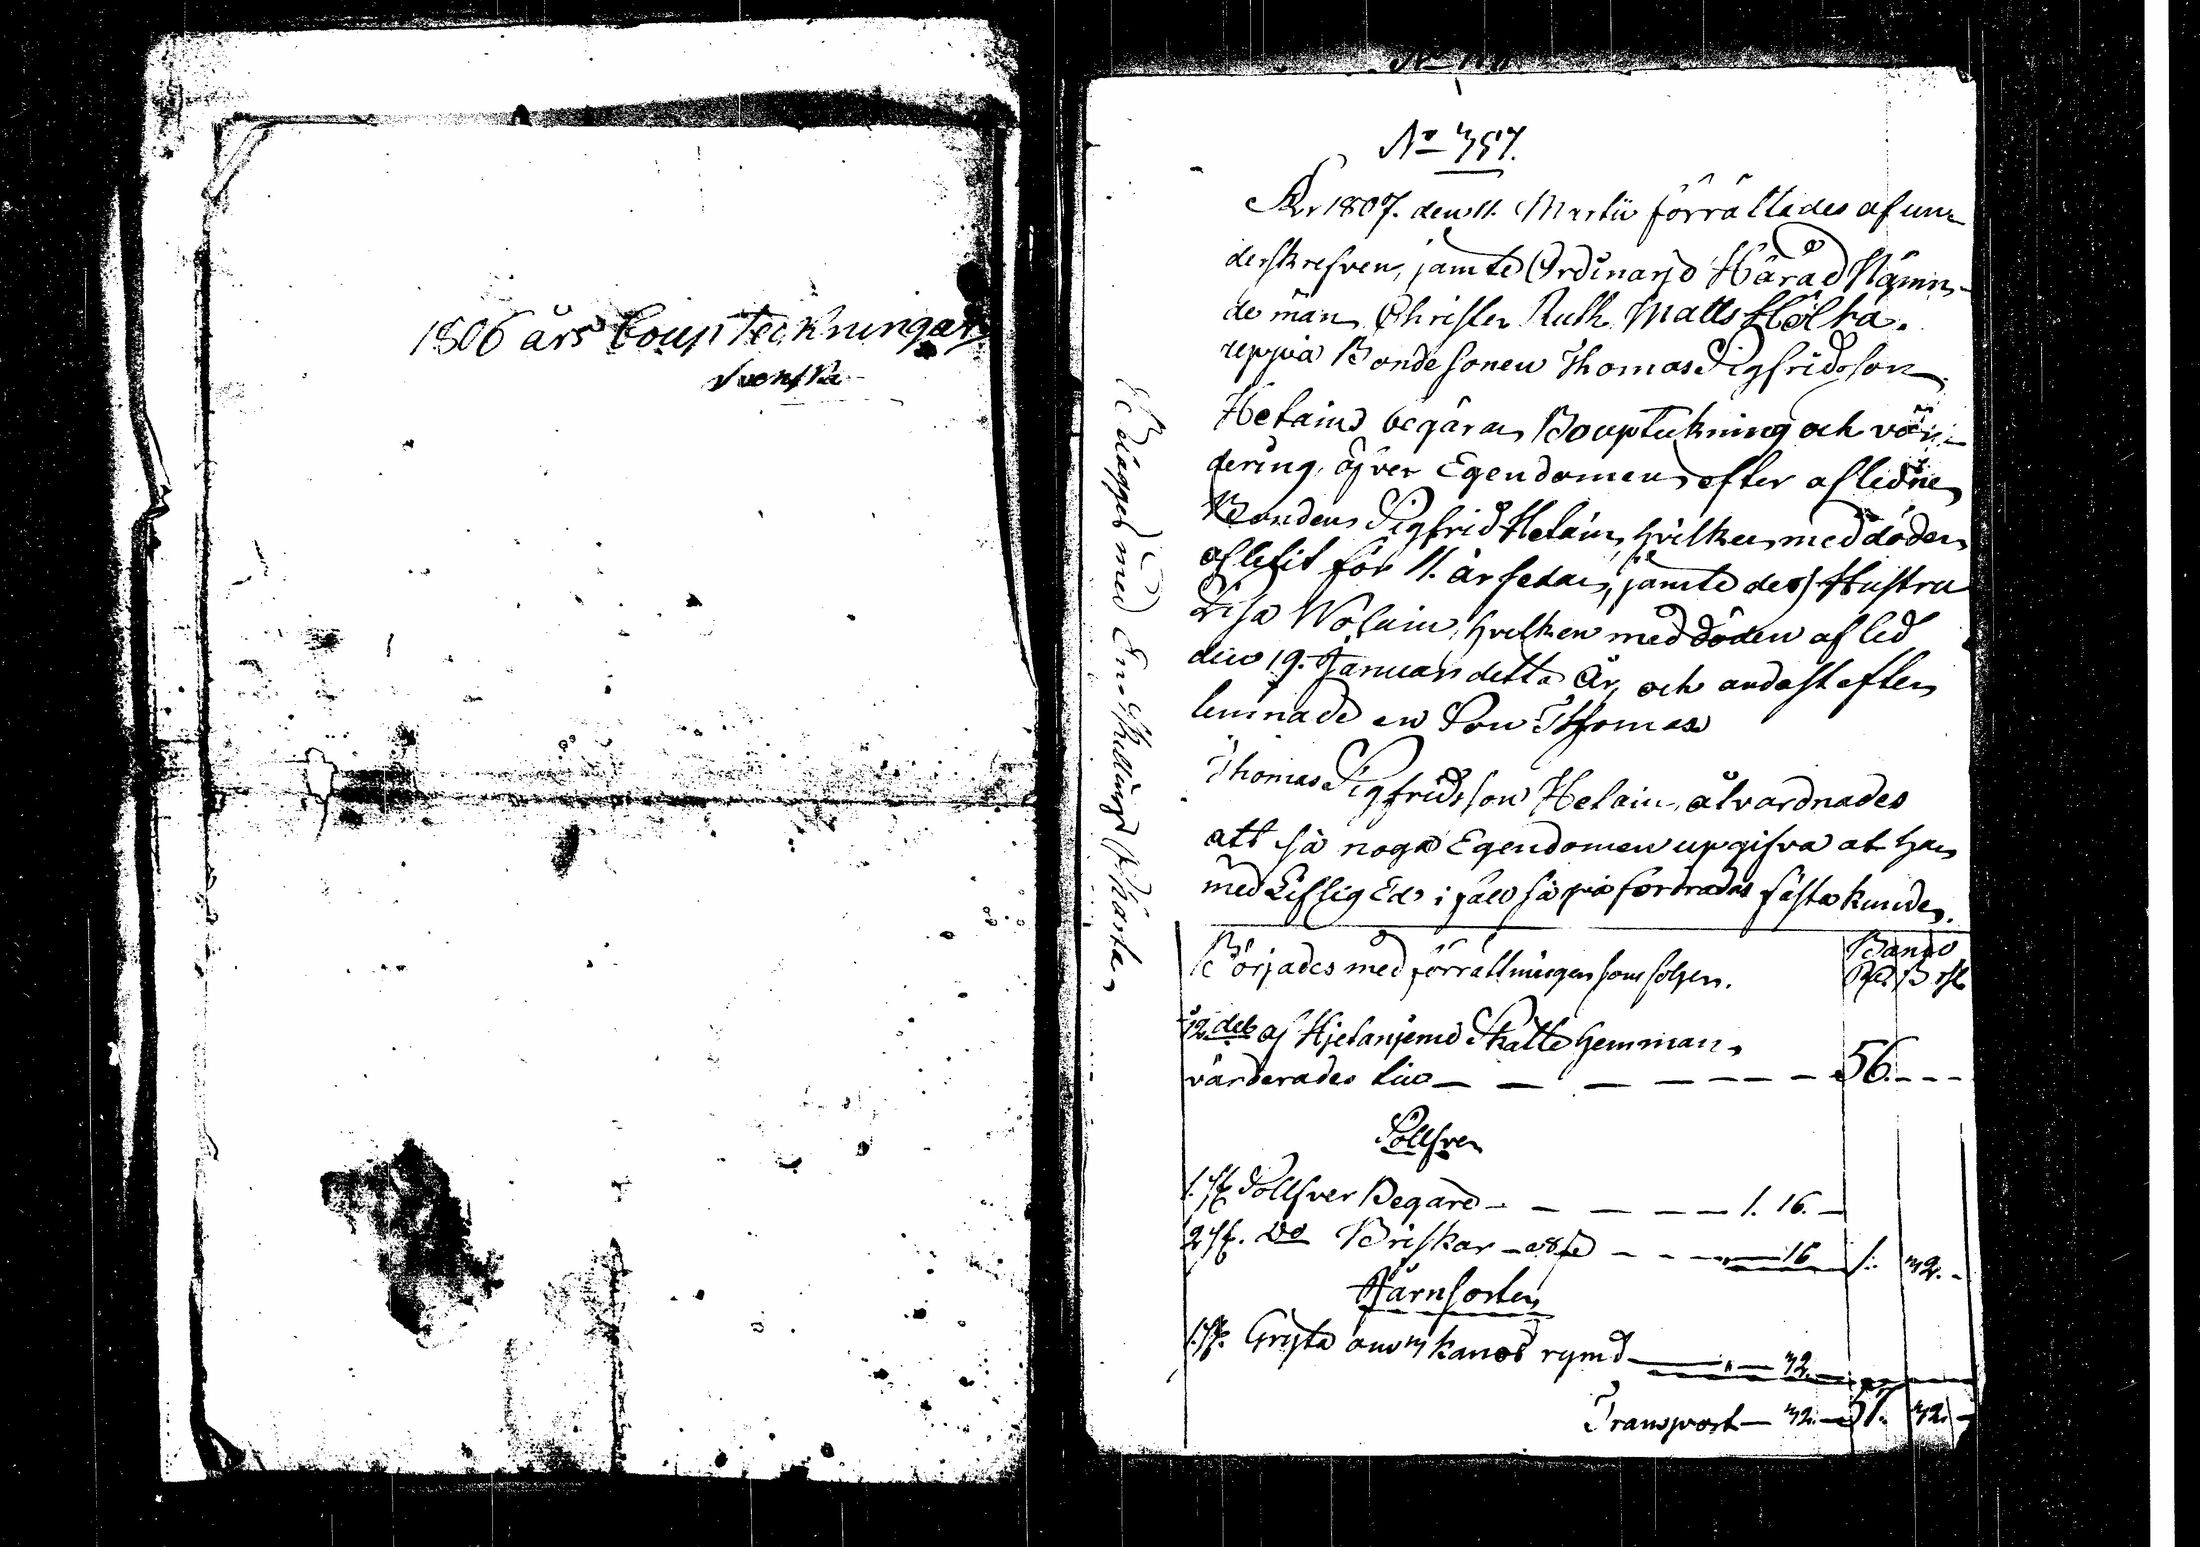 1806 års Bouptekningar
Svenska
No 357.
År 1807. den 11. Martii förrättades af un-
derskrefven, jämte Ordinarje Härad Nämn-
de män Christer Ruth Matts
uppå Bondesonen Thomas Sigfridsson
Hetain begäran Bouptekning och vär-
dering öfver Egendomen efter aflidne
Bonden Sigfrid Hetain, hvilken med döden
aflidit för 11. år sedan, jämte dess Hustru
Lisa Wolain, hvilken med döden afled
den 19. Januari detta År, och endast efter
lemnade en Son Thomas
Thomas Sigfridsson Hetain, alvardnades
att så noga Egendomen upgifva at han
med Liflig Ed i fall så påfordrades fästa kunde.
Börjades med förrättningen som följer.
Banco
Rd. ß rst
12 del af Hjetanjemi Skatte hemman
värderades till — — — — — — 56. - - -
Sollfver
1. st. Sollfver Begare — — — — — 1. 16. —
2 st. Do Briskar — — — 16 1. 32. -
Järnsorter
1. st. Gryta om 3 kanors rymd — — 32. —
Transport — 32. — 57. 32. -
Belägges med En Skillings Charta